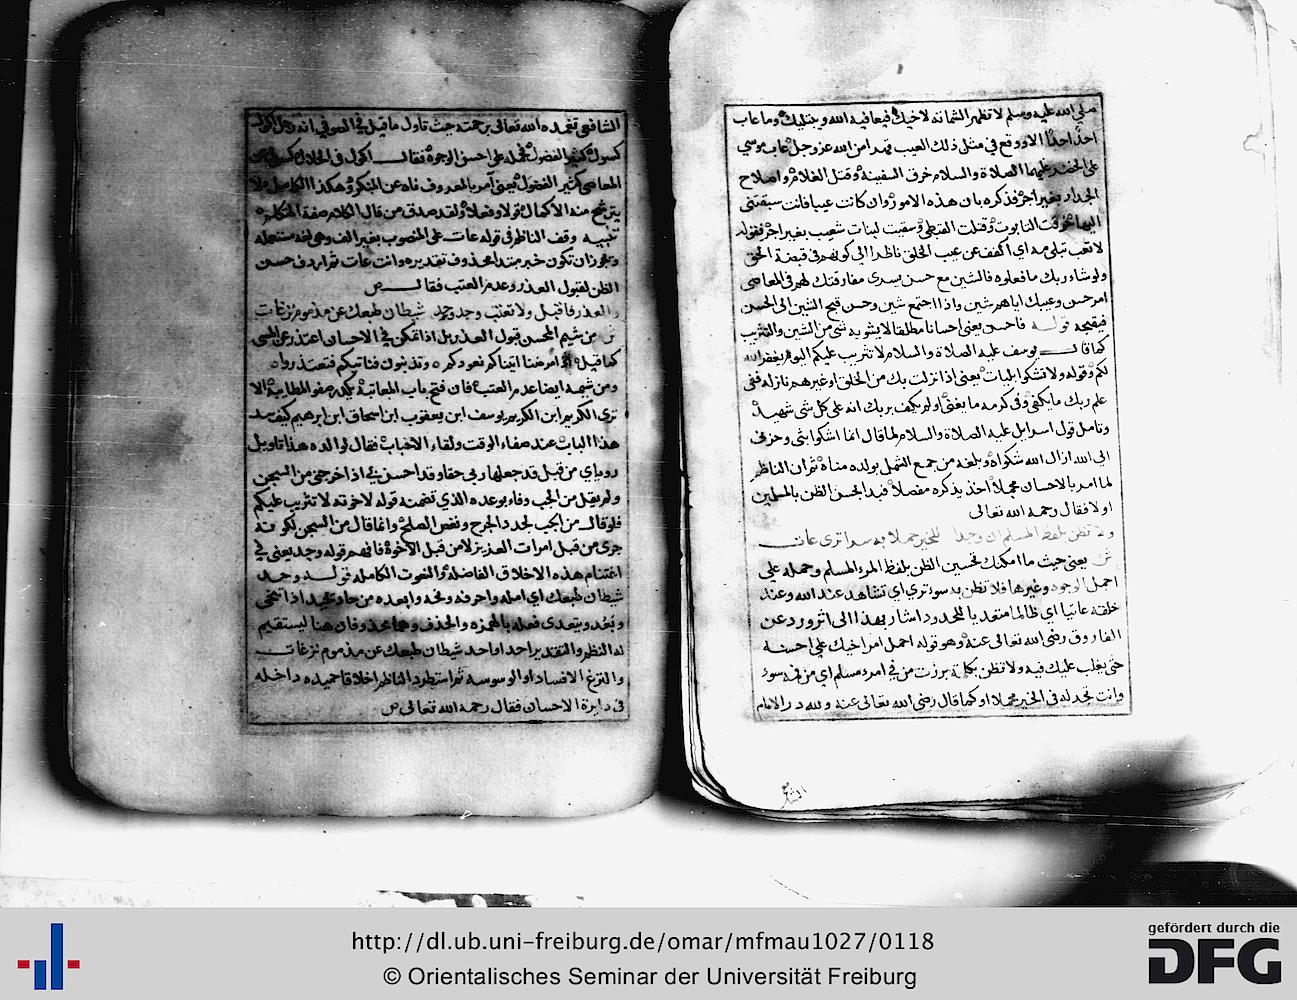 صلى الله عليه وسلم لا تظهر الشماتة لاخيك فيعافيه الله ويبتليك وما عاب
احد احدا الا ووقع في مثل ذلك العيب فقد امن الله عز وجل عاب موسي
على الخضر عليهما الصلاة والسلام خرق السفينة وقتل الغلام واصلاح
الجدار بغير اجر فذكره بان هذه الامور وان كانت عيبا فانت سبقتني
اليها خرقت التابوت وقتلت القبطي وسقيت لبنات شعيب بغير اجر فقوله
لا تعب تبلى مه اي اكفف عن عيب الخلق ناظرا الى كونهم في قبضة الحق
ولو شاء ربك ما فعلوه فالشين مع حسن يسدي مفارقتك لهم في المعاصي
امر حسن وعيبك اياهم شين واذا اجتمع شين وحسن قبح الشين الى الحسن
فيقبحه قوله فاحسن يعني احسانا مطلقا لا يشوبه شي من الشين والتثريب
كما قال يوسف عليه الصلاة والسلام لا تثريب عليكم اليوم يغفر الله
لكم وقوله ولا تشكو ابليات يعني اذا نزلت بك من الخلق او غيرهم نازلة ففي
علم ربك ما يكفي وفي كرمه ما يغني اولم يكف بربك انه على كل شي شهيد
وتامل قول اسرايل عليه الصلاة والسلام لما قال انما اشكوا بثى وحزنى
الى الله ازال الله شكواه وبلغه من جمع الشمل بولده مناه ثم ان الناظم
لما امر بالاحسان مجملا اخذ يذكره مفصلا فبدا بحسن الظن بالمسلمين
اولا فقال رحمه الله تعالى
ولا تظن بلفظ المسلم ان وجدا للخير حملا به سوا ترى عات
ش يعني حيث ما امكنك تحسين الظن بلفظ المرء المسلم وحمله على
اجمل الوجود وغيرها فلا تظن به سوء ترى اي تشاهد عند الله وعند
خلقه عاتيا اي ظالما متعديا للحدود اشار بهذا الى اثر ورد عن
الفاروق رضى الله تعالى عنه وهو قوله احمل امر اخيك على احسنه
حتى يغلب عليك فيه ولا تظن بكلمة برزت من في امرء مسلم اي من فمه سوء
وانت تجد له في الخير محملا او كما قال رضى الله تعالى عنه ولله در الامام
الشافعي
الشافعي تغمده الله تعالى برحمته حيث تاول ما قيل في الصوفي انه رجل اكول
كسول كثير الفضول فحمله على احسن الوجوه فقال اكول في الحلال كسول عن
المعاصي كثير الفضول يعني آمر بالمعروف ناه عن المنكر وهكذا الكامل لا
يترشح منه الا كمال قولا وفعلا ولقد صدق من قال الكلام صفة المتكلم
تنبيه وقف الناظم في قوله عات على المنصوب بغير الف وهى لغة مستعملة
ويجوز ان تكون خبر مبتدا محذوف تقديره وانت عات ثم اردف حسن
الظن لقبول العذر وعدم العتب فقال ص
والعذر فاقبل ولا تعتب وجد وحد شيطان طبعك عن مذموم نزغات
ش من شيم المحسن قبول العذر بل اذا تمكن في الاحسان اعتذر عن المسي
كما قيل اذا مرضنا اتيناكم نعودكم وتذنبون فناتيكم فنعتذروا
ومن شيمه ايضا عدم العتب فان فتح باب المعاتبة يكدر صفو المطايبة الا
ترى الكريم ابن الكريم يوسف ابن يعقوب ابن اسحاق ابن ابرهيم كيف سد
هذا الباب عند صفاء الوقت ولقاء الاحباب فقال لوالده هذا تاويل
روياي من قبل قد جعلها ربي حقا وقد احسن بي اذ اخرجني من السجن
ولم يقل من الجب وفاء بوعده الذي تضمنه قوله لاخوته لا تثريب عليكم
فلو قال من الجب لجدد الجرح ونقض الصلح وانما قال من السجن لكونه
جرى من قبل امرات العزيز لا من قبل الاخوة فافهم قوله وجد يعني في
اغتنام هذه الاخلاق الفاضلة والنعوت الكاملة قوله وحد
شيطان طبعك اي امله واحرفه ونحه وابعده من حاد يحيد اذا تنحى
وبعد ويتعدى فعله بالهمزه والحذف وهما محذوفان هنا ليستقيم
له النظم والتقدير احد احد شيطان طبعك عن مذموم نزغات
والنزغ الافساد او الوسوسة ثم استطرد الناظم اخلاقا حميده داخله
في دايرة الاحسان فقال رحمه الله تعالى ص
http://dl.ub.uni-freiburg.de/omar/mfmau1027/0118
© Orientalisches Seminar der Universität Freiburg
gefördert durch die
DFG